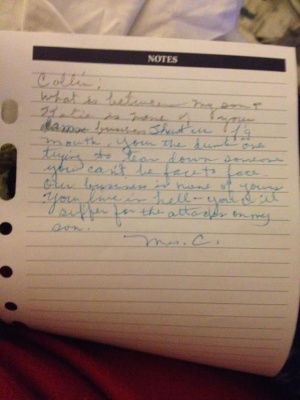 NOTES
Collin;
What is between my son &
Katie is none of your
damn business Shut ur fg
mouth. Your the dumb one
trying to tear down someone
you can't be face to face.
Our business is none of yours
You live in hell - you'll
suffer for the attacks on my
son.
Mrs. C.